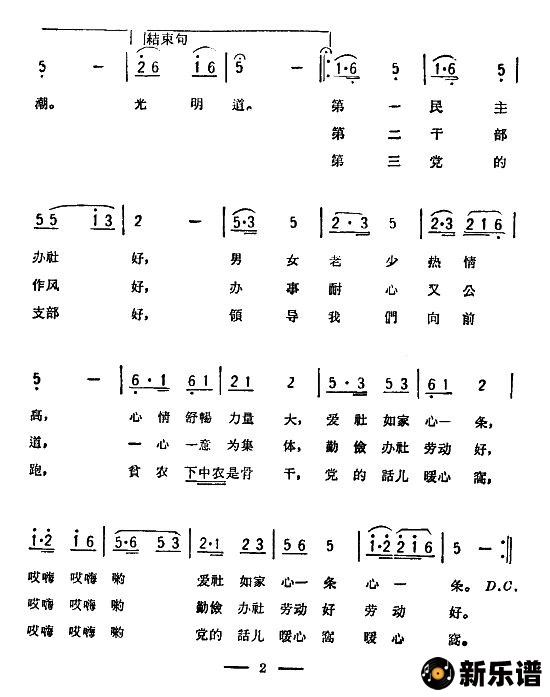 結束句
5 — | 2 6 1 6 | 5 — :| 1·6 5 | 1·6 5 |
潮。 光 明 道。 第 一 民 主
第 二 干 部
第 三 党 的
5 5 1 3 | 2 — | 5·3 5 | 2·3 5 | 2·3 2 1 6 |
办社 好， 男 女 老 少 热 情
作风 好， 办 事 耐 心 又 公
支部 好， 領 导 我 們 向 前
5 — | 6·1 6 1 | 2 1 2 | 5·3 5 3 | 6 1 2 |
高， 心 情 舒暢 力量 大， 爱 社 如家 心一 条，
道， 一心 一意 为集 体， 勤 儉 办社 劳动 好，
跑， 貧 农 下中农是骨 干， 党 的 話儿 暖心 窩，
1·2 1 6 | 5·6 5 3 | 2·1 2 3 | 5 6 5 | 1·2 2 1 6 | 5 — :|
哎嗨 哎嗨 喲 爱社 如家 心一 条 心 一 条。 D.C.
哎嗨 哎嗨 喲 勤儉 办社 劳动 好 劳 动 好。
哎嗨 哎嗨 喲 党的 話儿 暖心 窩 暖 心 窩。
— 2 —
新乐谱